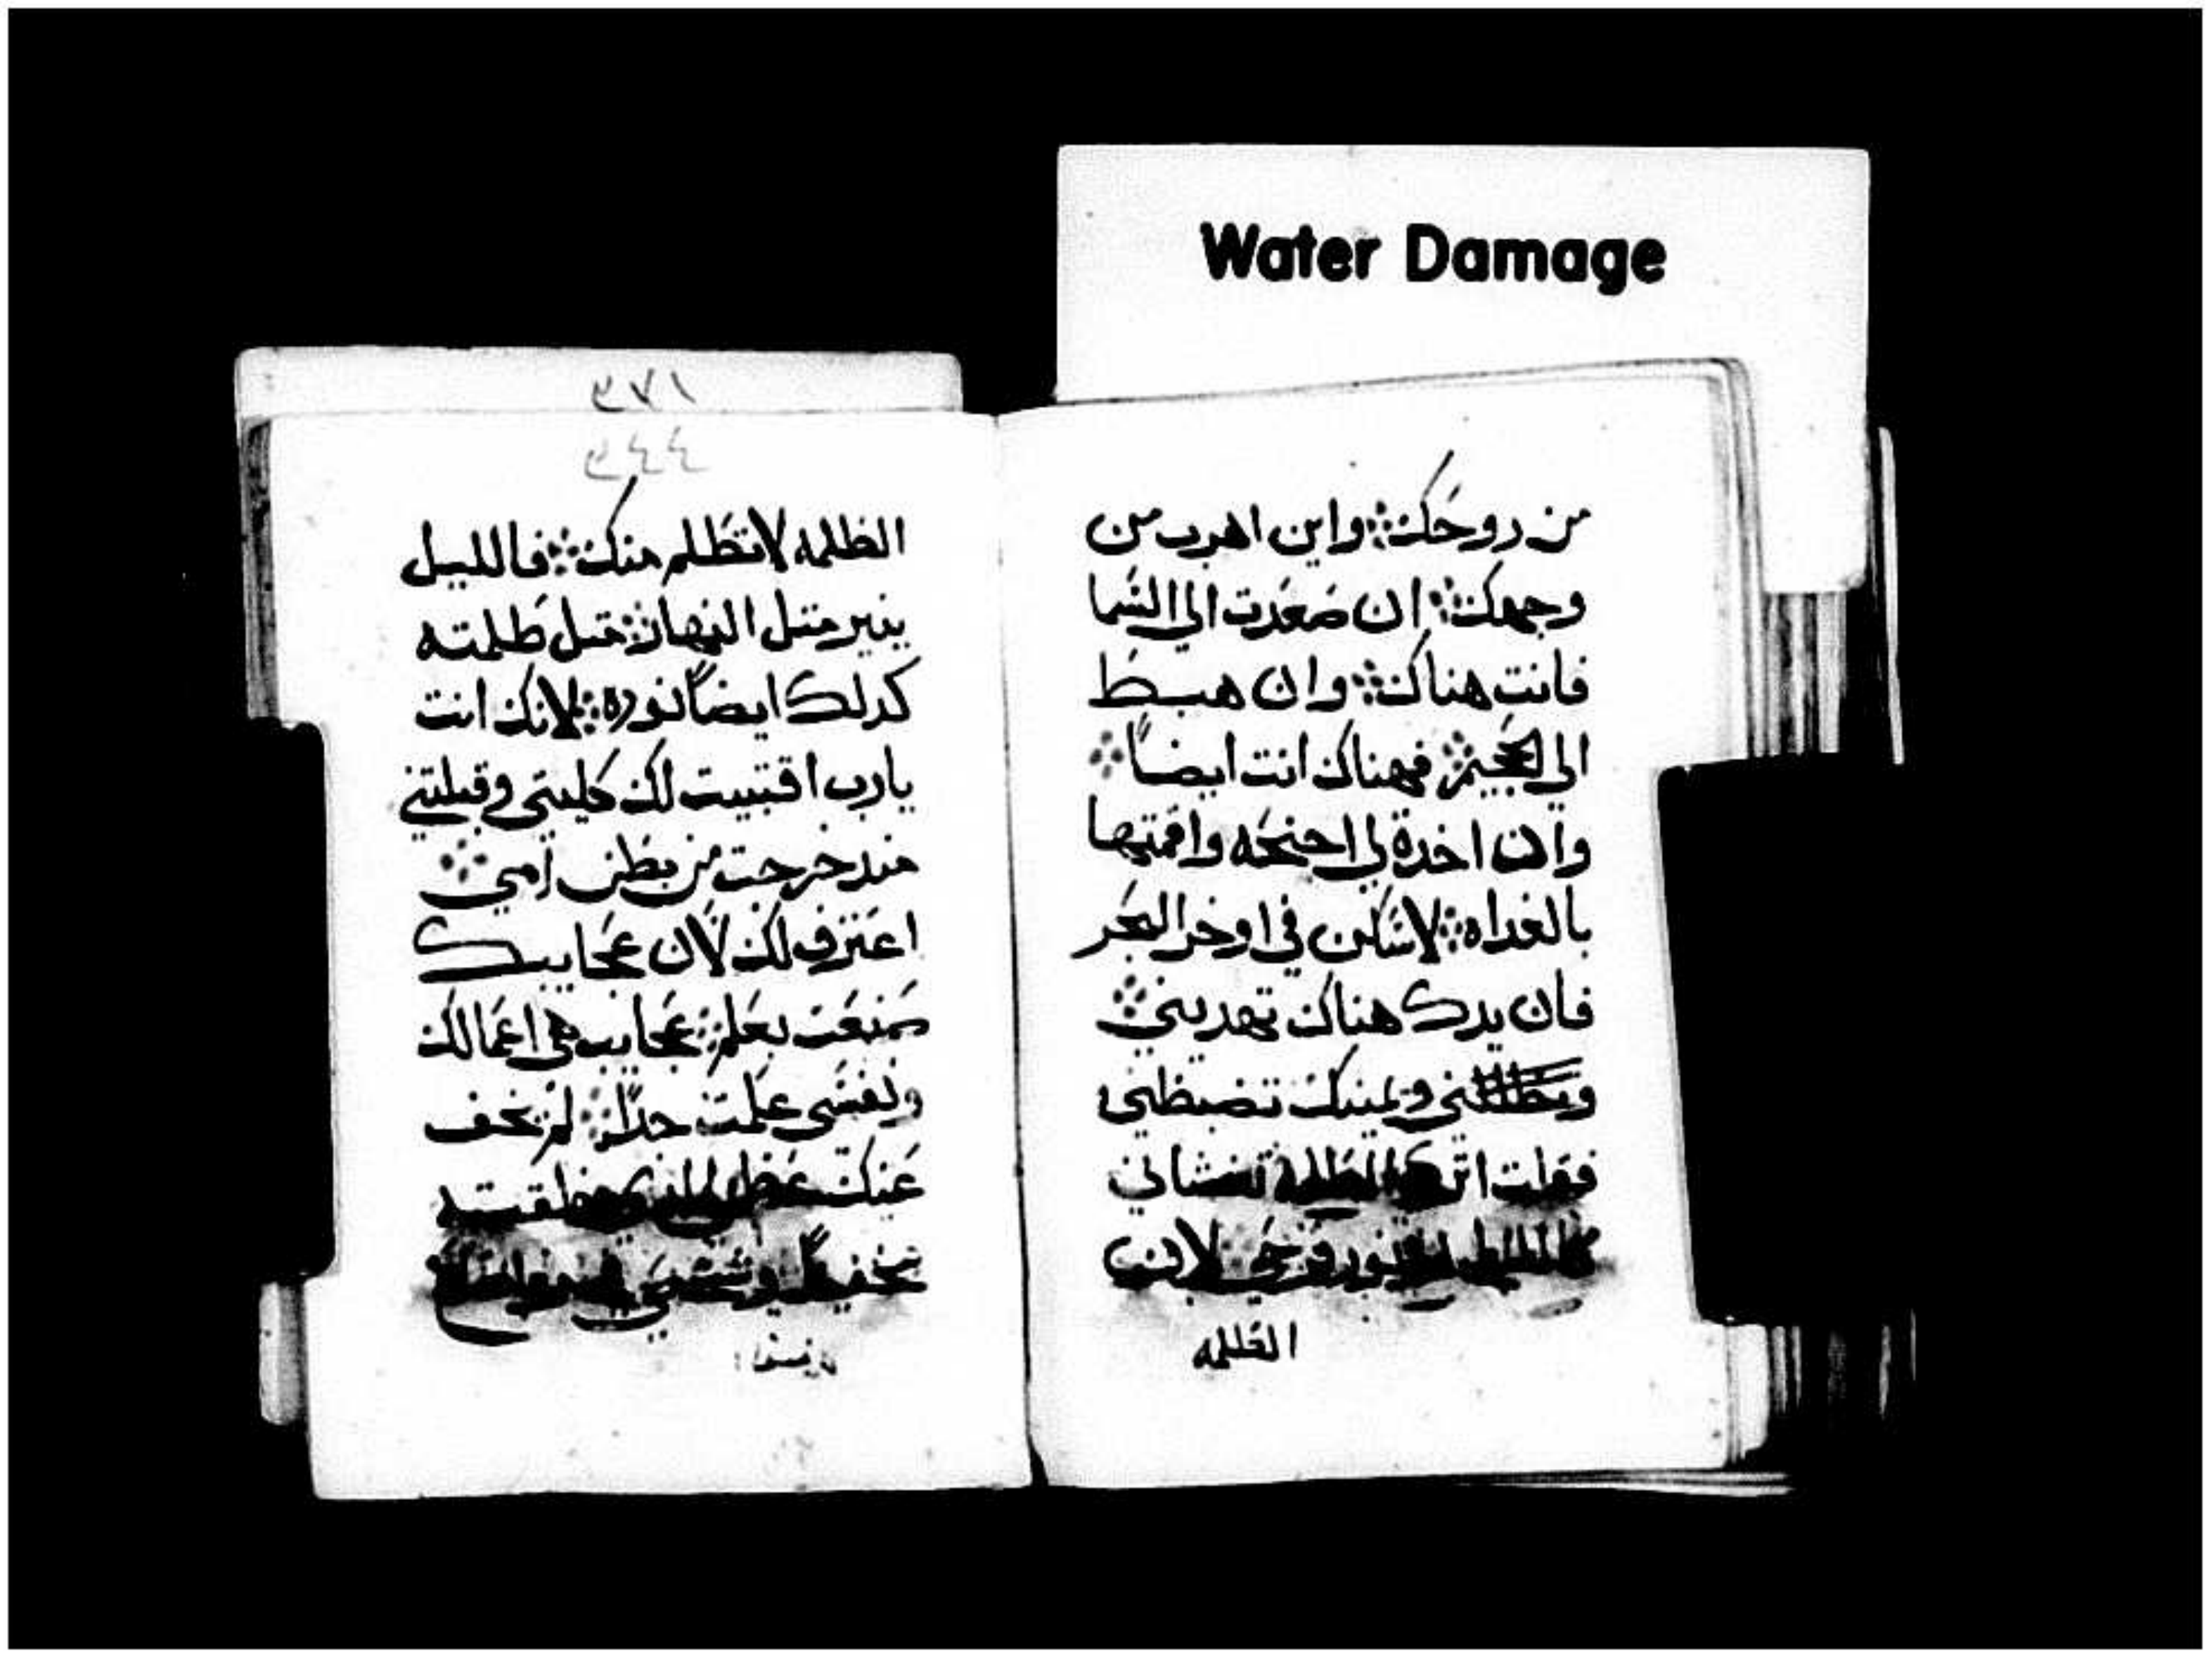 Water Damage
من روحك ܀ واين اهرب من
وجهك ܀ ان صعدت الى السما
فانت هناك ܀ وان هبط
الى الجحيم ܀ فهناك انت ايضاً ܀
وان اخدة لي اجنحه واقمتها
بالغداه ܀ لاسكن في اوخر البحر
فان يدك هناك تهديني ܀
ويمينك تضبطني
فقلت اترى الظلمة تغشاني
لابن
الظلمه
٢٧١
٢٤٤
الظلمه لا تظلم منك ܀ فالليل
ينير متل النهار ܀ متل ظلمته
كدلك ايضاً نوره ܀ لانك انت
يارب اقتنيت لك كليتي وقبلتني
مند خرجت من بطن امي ܀
اعترف لك لان عجايبك
صنعت بعلم ܀ عجايب هى اعمالك
ونفسى علمت جداً ܀ لم يخف
عنك عظمي الدي خلقته